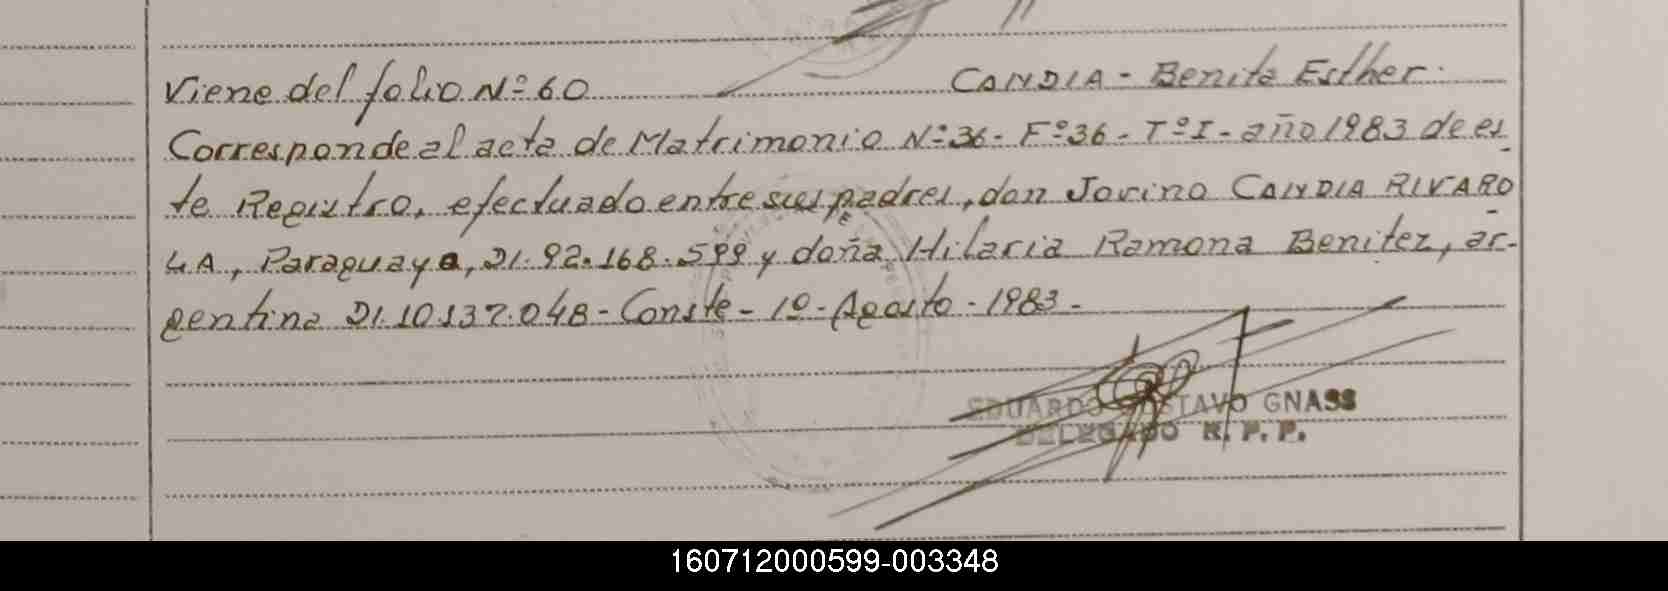 Viene del folio Nº 60 CANDIA - Benita Esther.
Corresponde al acta de Matrimonio Nº 36 - Fº 36 - Tº I - año 1983 de es-
te Registro, efectuado entre sus padres, don Jovino CANDIA RIVARO-
LA, Paraguaya, DI. 92.168.599 y doña Hilaria Ramona Benitez, ar-
gentina DI. 10.137.048 - Conste - 10 - Agosto - 1983 -
EDUARDO GUSTAVO GNASS
DELEGADO R. P. P.
160712000599-003348